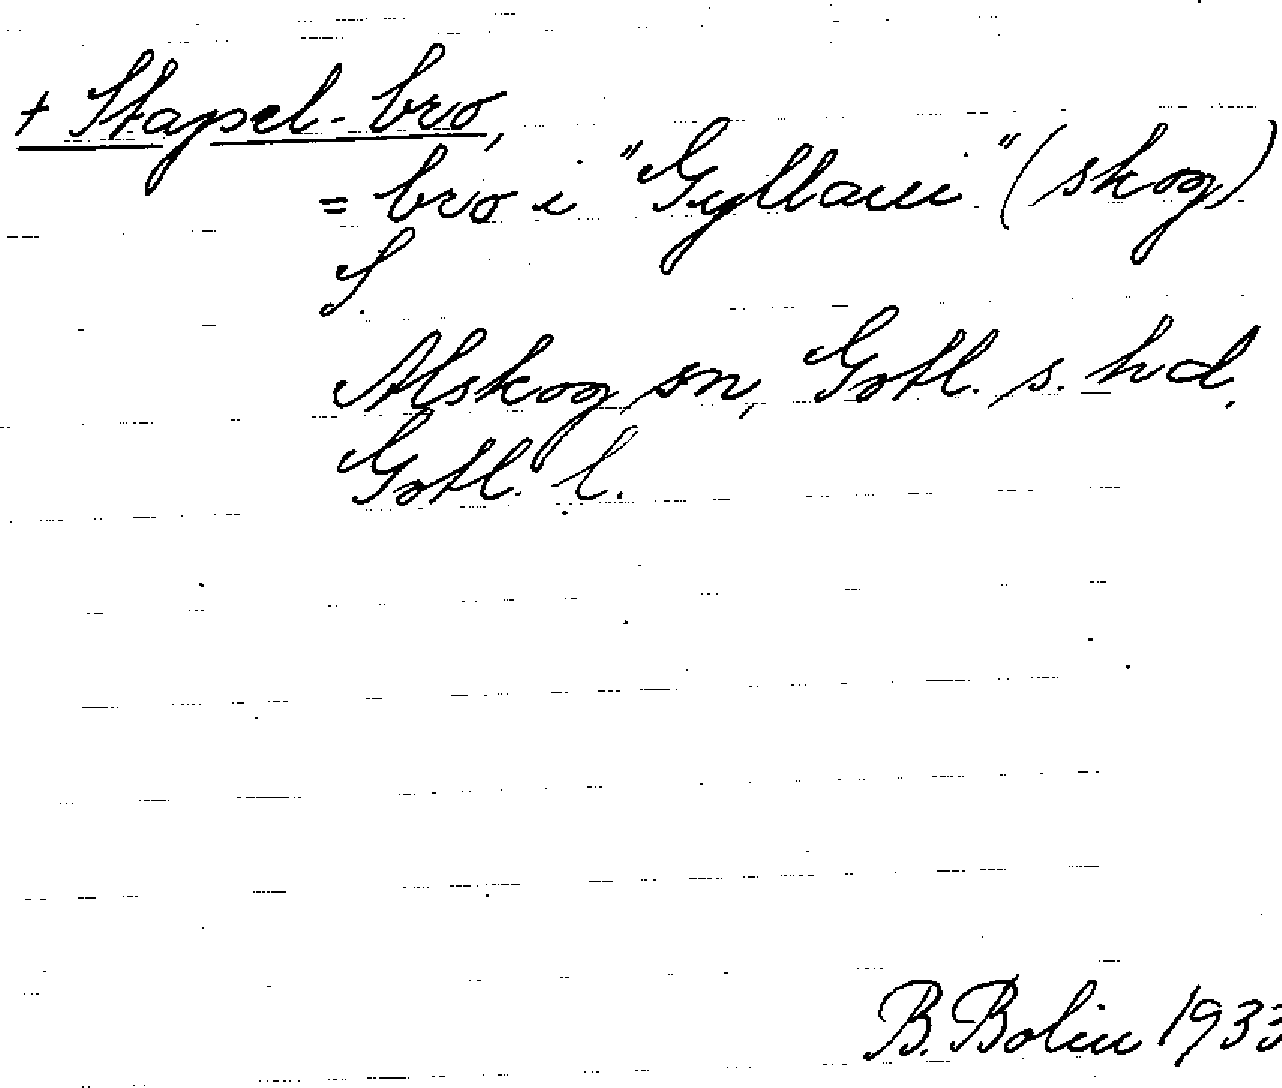 + Stapel-bro,
= bro i "Gyllaui" (skog)
S.
Alskog sn, Gotl. s. hd.
Gotl. l.
B. Bolin 1933